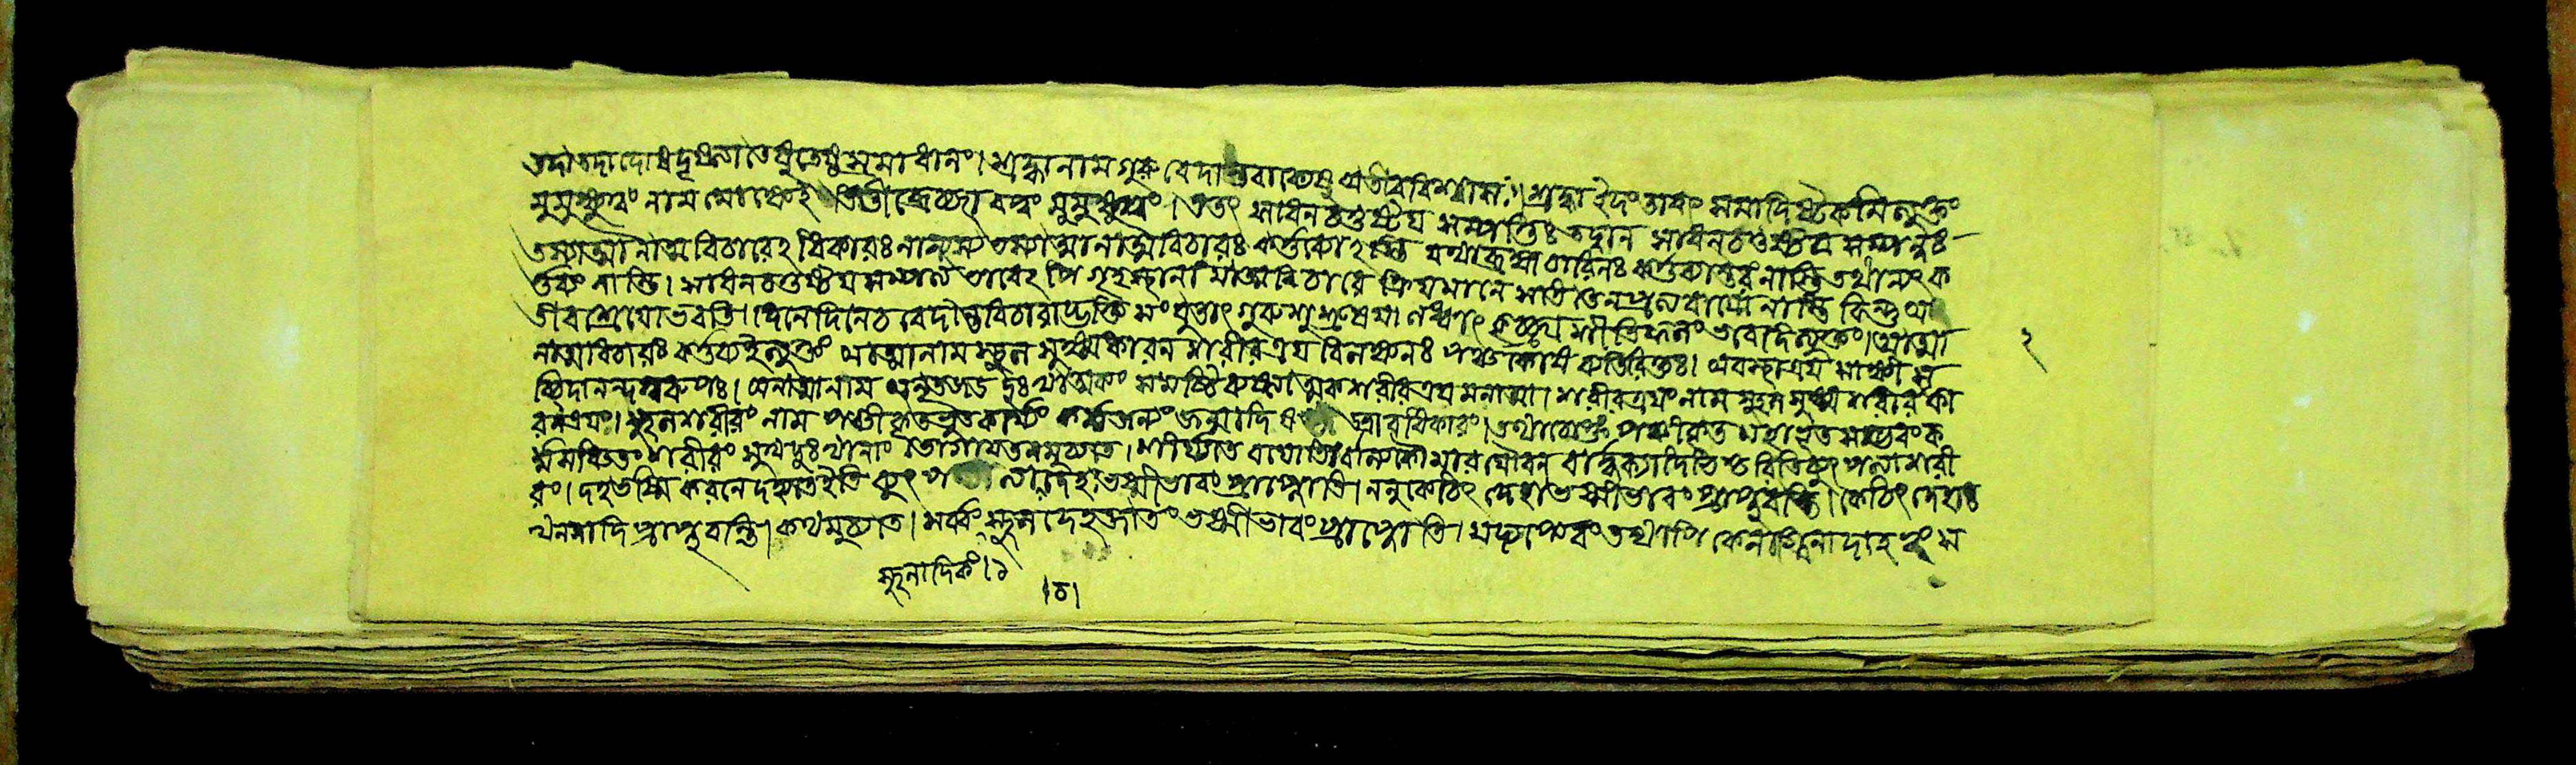 তদা তদা দোষদৃষ্ট্যা তেষু তেষ্ব সমাধানং। শ্রদ্ধানাম গুরুবেদান্তবাক্যেষু অতীববিশ্বাসঃ। শ্রদ্ধা ইদং তাবৎ সমাদিষট্কমিত্যুক্তং
মুমুক্ষুত্বং নাম মোক্ষেই তীব্রেচ্ছাবত্ত্বং মুমুক্ষুত্বং। এতৎ সাধনচতুষ্টয় সম্পত্তিঃ তদ্বান সাধনচতুষ্টয় সম্পন্নঃ
তস্যাত্মানাত্মবিচারেঽধিকারঃ নান্যস্য তস্যাত্মানাত্মবিচারঃ কর্ত্তব্যোঽস্তি যথা ব্রহ্মচারিনঃ কর্ত্তব্যান্তরং নাস্তি তথান্যৎ ক
র্ত্তব্যং নাস্তি। সাধনচতুষ্টয়সম্পত্ত্য ভাবেঽপি গৃহস্থানামাত্মবিচারে ক্রিয়মানে সতি তেন প্রত্যবায়ো নাস্তি কিন্তু অ
তীবশ্রেয়ো ভবতি। দিনেদিনেচ বেদান্তবিচারাদ্ভক্তি সংযুতাৎ গুরুশুশ্রূষয়া লব্ধাৎ কৃচ্ছ্রাশীতিফলং ভবেদিত্যুক্তং। আত্মা
নাত্মবিচারঃ কর্ত্তব্যইত্যুক্তং আত্মানাম স্থূল সূক্ষ্মকারন শরীরত্রয় বিলক্ষনঃ পঞ্চকোষব্যতিরিক্তঃ। অবস্থাত্রয় সাক্ষী স
চ্চিদানন্দস্বরূপঃ। অনাত্মানাম অনৃতজড় দুঃখাত্মকং সমষ্টিব্যষ্ট্যাত্মকশরীরত্রয়মনাত্মা। শরীরত্রয়ং নাম স্থূলসূক্ষ্মশরীরকা
রনত্রয়ং। স্থূলশরীরং নাম পঞ্চীকৃতভূতকার্য্যং কর্ম্মজন্যং জন্মাদি ষ ভাববিকারং। তথাচোক্তং পঞ্চীকৃত মহাভূত সম্ভবং ক
র্ম্মসঞ্চিতং শরীরং সুখদুঃখানাং ভোগায়তনমুচ্যতে। শীর্য্যতে বয়োভির্বাল্যকৌমারযৌবন বার্দ্ধক্যাদিভিশ্চেতি ব্যুৎপত্যাশরী
রং। দহভস্মীকরনে দহ্যতেইতি ব্যুৎপত্ত্যা দেহঃ ভস্মীভাবং প্রাপ্নোতি। ননুকেচিৎ দেহা ভস্মীভাবং প্রাপ্নুবন্তি। কেচিৎ দেহাঃ
খননাদি প্রাপ্নুবন্তি। কথমুচ্যতে। সর্ব্বং স্থূলদেহজাতং ভস্মীভাবং প্রাপ্নোতি। যদ্যপ্যেবং তথাপি কেনাগ্নিনাদাহত্বং স
স্থূলাদিকং।১
।চ।
২